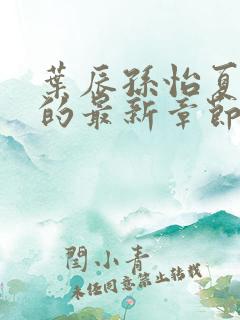 葉辰孫怡夏
的最新章節
閆小青
未经同意禁止转载